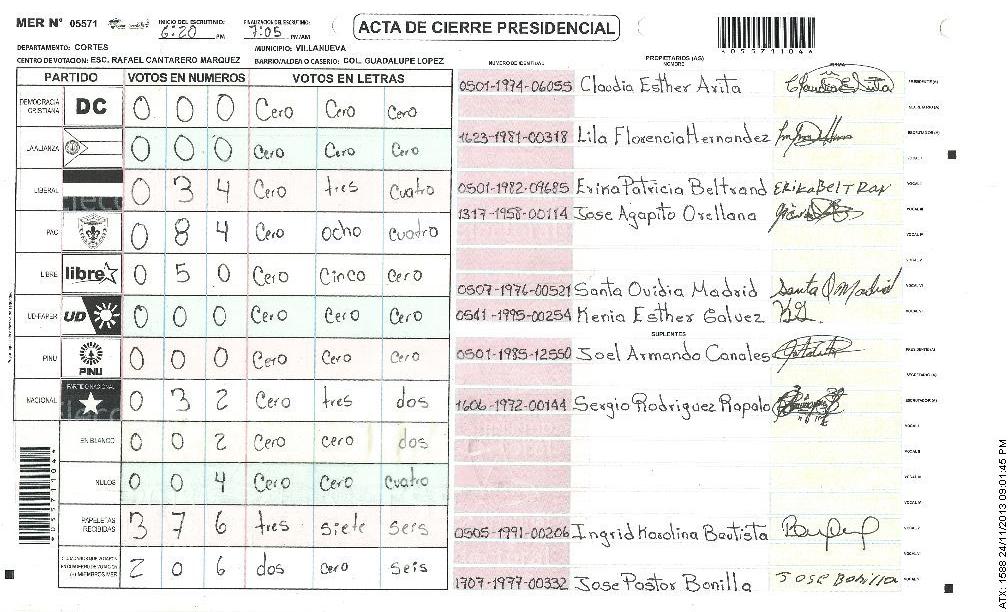 MER N° 05571
INICIO DEL ESCRUTINIO: 6:20 PM
FINALIZACION DEL ESCRUTINIO: 7:05 PM/AM
ACTA DE CIERRE PRESIDENCIAL
055711046
DEPARTAMENTO: CORTES
MUNICIPIO: VILLANUEVA
CENTRO DE VOTACION: ESC. RAFAEL CANTARERO MARQUEZ
BARRIO/ALDEA O CASERIO: COL. GUADALUPE LOPEZ
PARTIDO VOTOS EN NUMEROS VOTOS EN LETRAS
DEMOCRACIA CRISTIANA DC 0 0 0 Cero Cero Cero
LA ALIANZA 0 0 0 Cero Cero Cero
LIBERAL 0 3 4 Cero tres Cuatro
PAC 0 8 4 Cero ocho cuatro
LIBRE libre 0 5 0 Cero Cinco Cero
UD-FAPER UD 0 0 0 Cero Cero Cero
PINU PINU 0 0 0 Cero Cero Cero
NACIONAL PARTIDO NACIONAL 0 3 2 Cero tres dos
EN BLANCO 0 0 2 Cero cero dos
NULOS 0 0 4 Cero Cero Cuatro
PAPELETAS RECIBIDAS 3 7 6 tres siete seis
CIUDADANOS QUE VOTARON 2 0 6 dos cero seis
(+) MIEMBROS MER
NUMERO DE IDENTIDAD
PROPIETARIOS (AS)
NOMBRE
FIRMA
0501-1974-06055 Claudia Esther Arita PRESIDENTE(A)
SECRETARIO(A)
1623-1981-00318 Lila Florencia Hernandez ESCRUTADOR(A)
0501-1982-09685 Erina Patricia Beltrand ERIKA BELTRAN
1317-1958-00114 Jose Agapito Orellana
0507-1976-00521 Santa Ovidia Madrid Santa O Madrid
0541-1995-00254 Kenia Esther Galvez KG.
SUPLENTES
0501-1985-12550 Joel Armando Canales PRESIDENTE(A)
SECRETARIO(A)
1606-1972-00144 Sergio Rodriguez Rapalo ESCRUTADOR(A)
0505-1991-00206 Ingrid Karolina Bautista
1707-1977-00332 Jose Pastor Bonilla JOSE BONILLA
055711046
ATX 1588 24/11/2013 09:01:45 PM